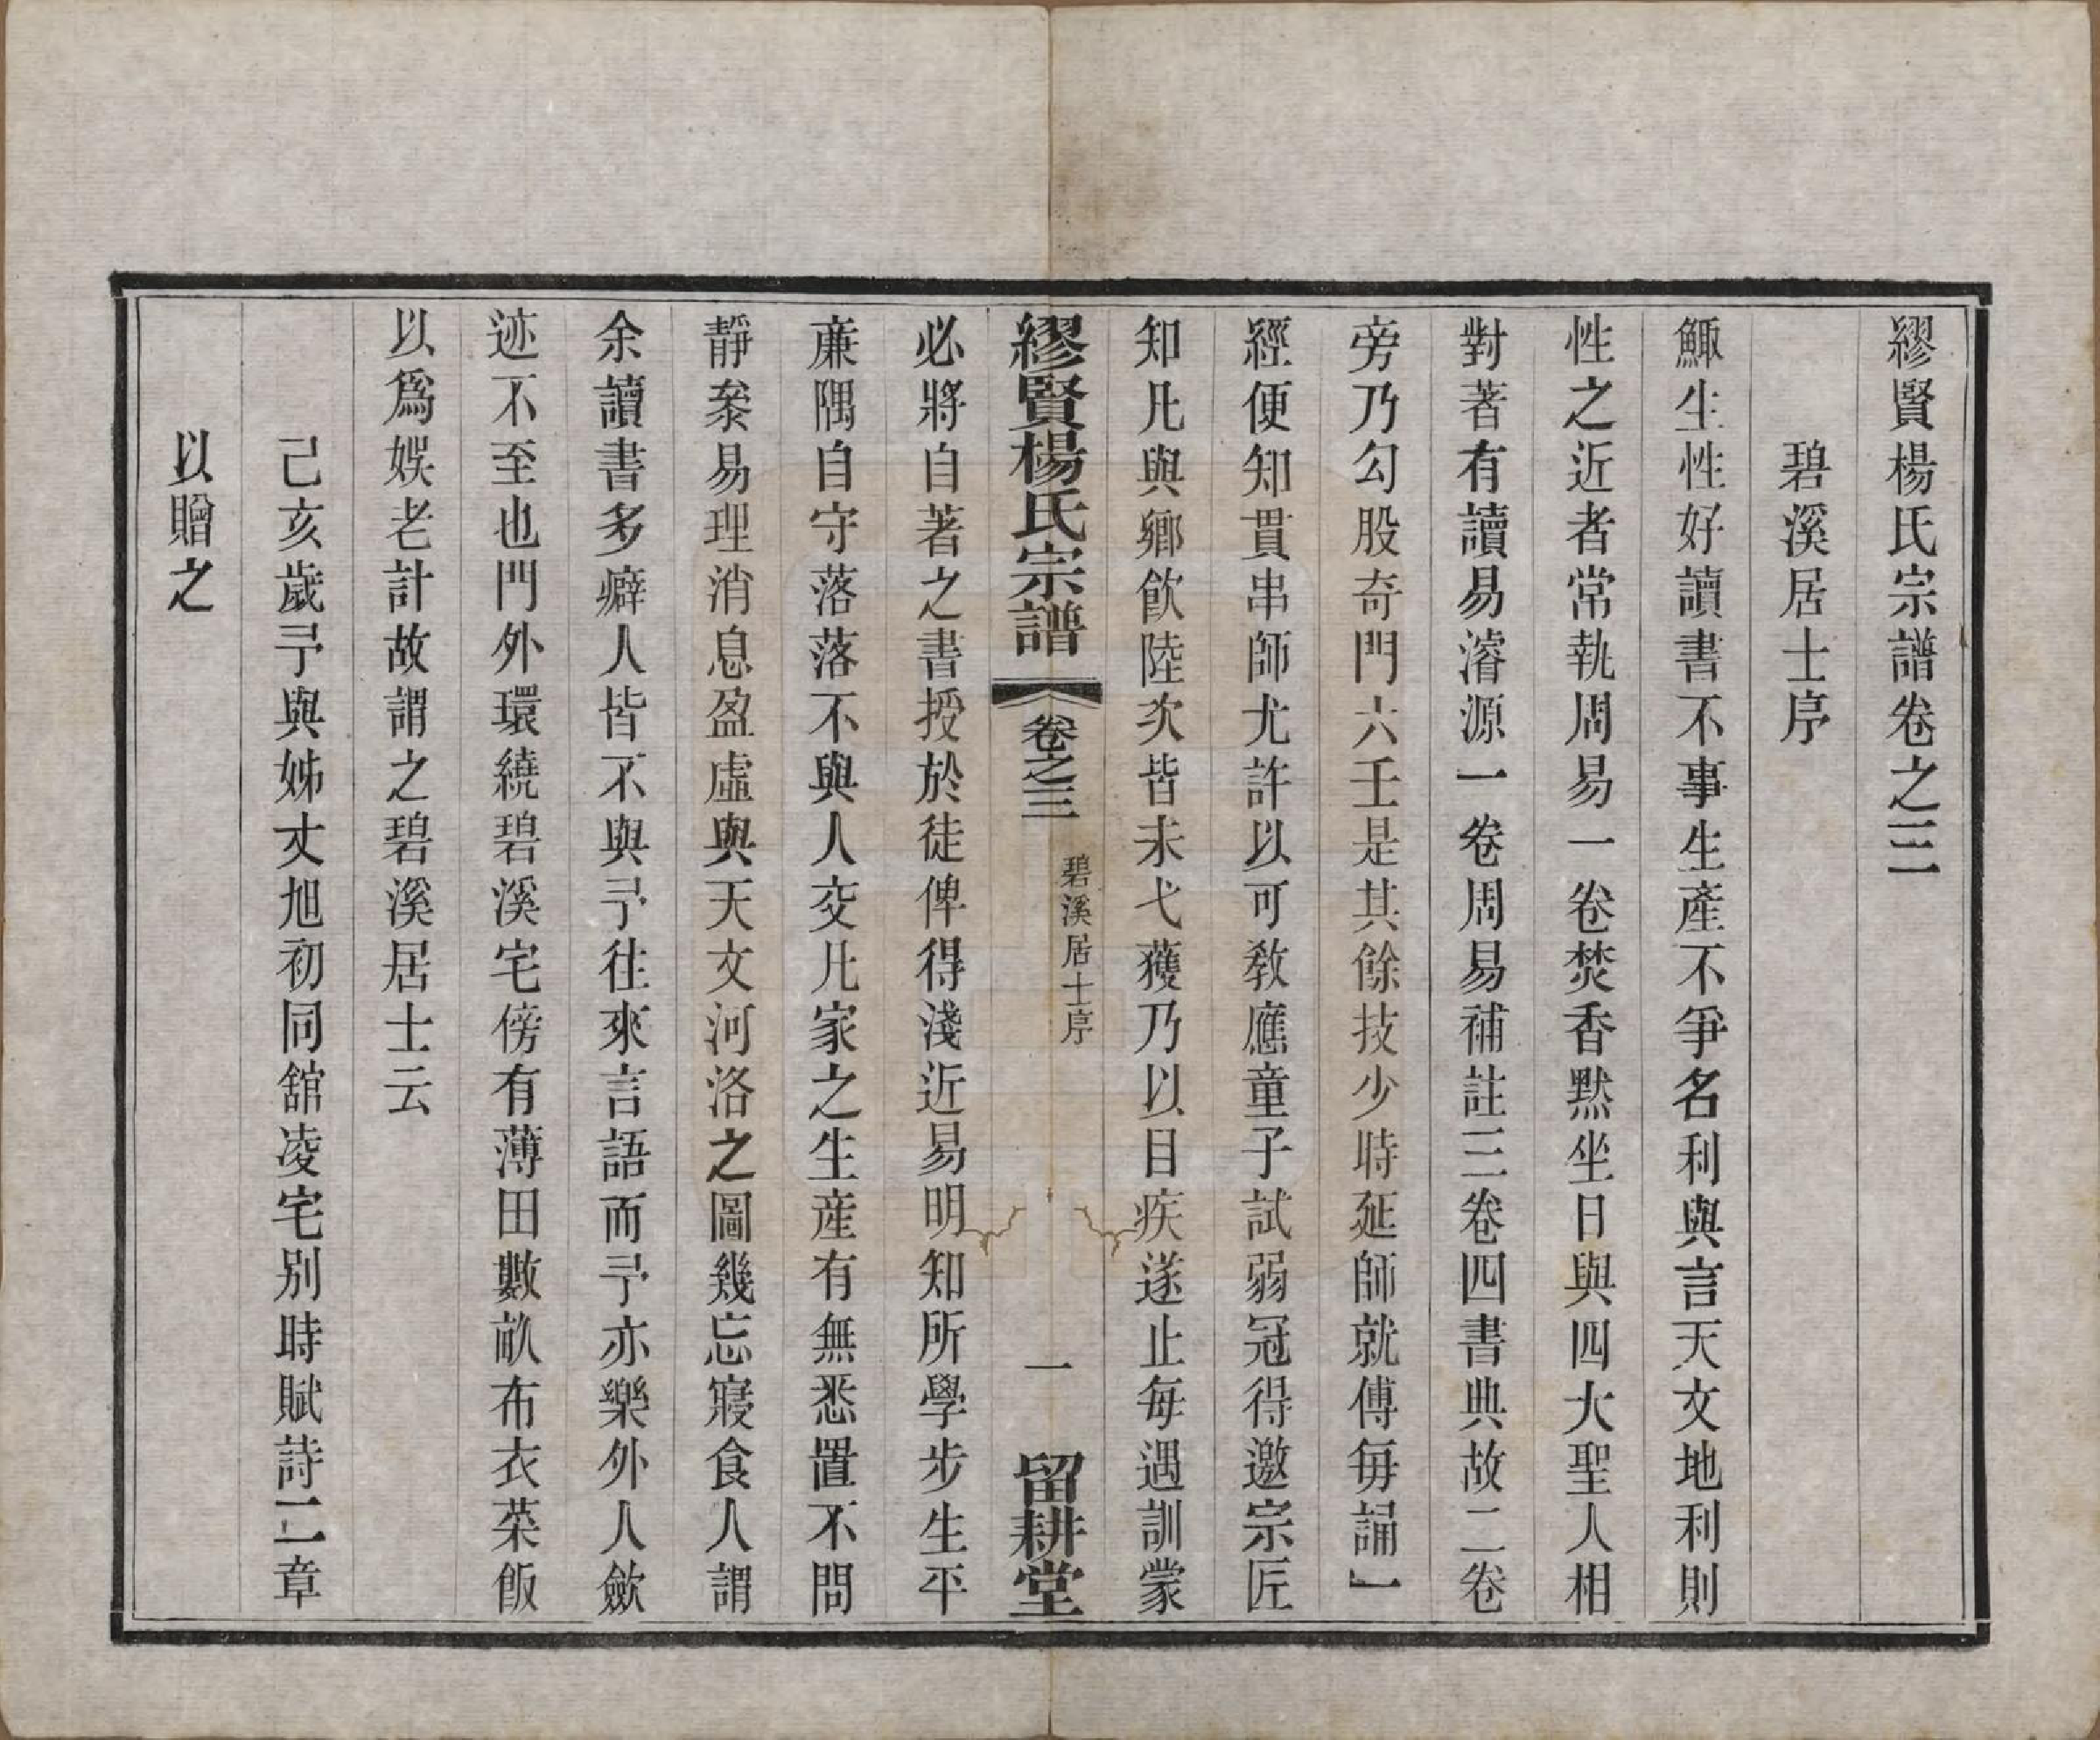 繆賢楊氏宗譜卷之三
碧溪居士序
鯫生性好讀書不事生產不爭名利與言天文地利則
性之近者常執周易一卷焚香默坐日與四大聖人相
對著有讀易濬源一卷周易補註三卷四書典故二卷
旁乃勾股奇門六壬是其餘技少時延師就傅每誦一
經便知貫串師尤許以可敎應童子試弱冠得邀宗匠
知凡與鄉飲陸次皆未弋獲乃以目疾遂止每遇訓蒙
繆賢楊氏宗譜 卷之三 碧溪居士序 一 留耕堂
必將自著之書授於徒俾得淺近易明知所學步生平
亷隅自守落落不與人交凡家之生產有無悉置不問
靜叅易理消息盈虛與天文河洛之圖幾忘寢食人謂
余讀書多癖人皆不與予往來言語而予亦樂外人歛
迹不至也門外環繞碧溪宅傍有薄田數畝布衣菜飯
以爲娛老計故謂之碧溪居士云
己亥歲予與姊丈旭初同舘凌宅別時賦詩二章
以贈之